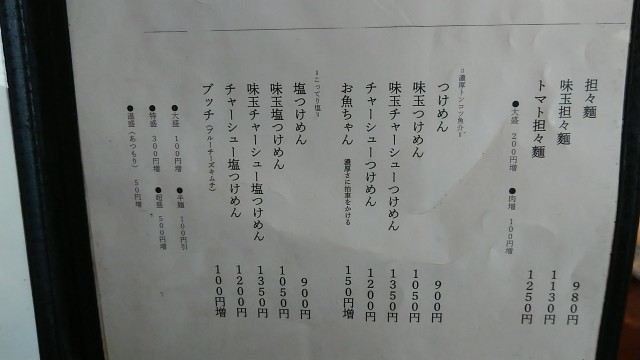 担々麺 980円
味玉担々麺 1130円
トマト担々麺 1250円
●大盛 200円増 ●肉増 100円増
＝濃厚トンコツ魚介＝
つけめん 900円
味玉つけめん 1050円
味玉チャーシューつけめん 1350円
チャーシューつけめん 1200円
お魚ちゃん 濃厚さに拍車をかける 150円増
＝こってり塩＝
塩つけめん 900円
味玉塩つけめん 1050円
味玉チャーシュー塩つけめん 1350円
チャーシュー塩つけめん 1200円
ブッチ（ブルーチーズキムチ） 100円増
●大盛 100円増 ●半麺 100円引
●特盛 300円増 ●超盛 500円増
●温盛（あつもり） 50円増